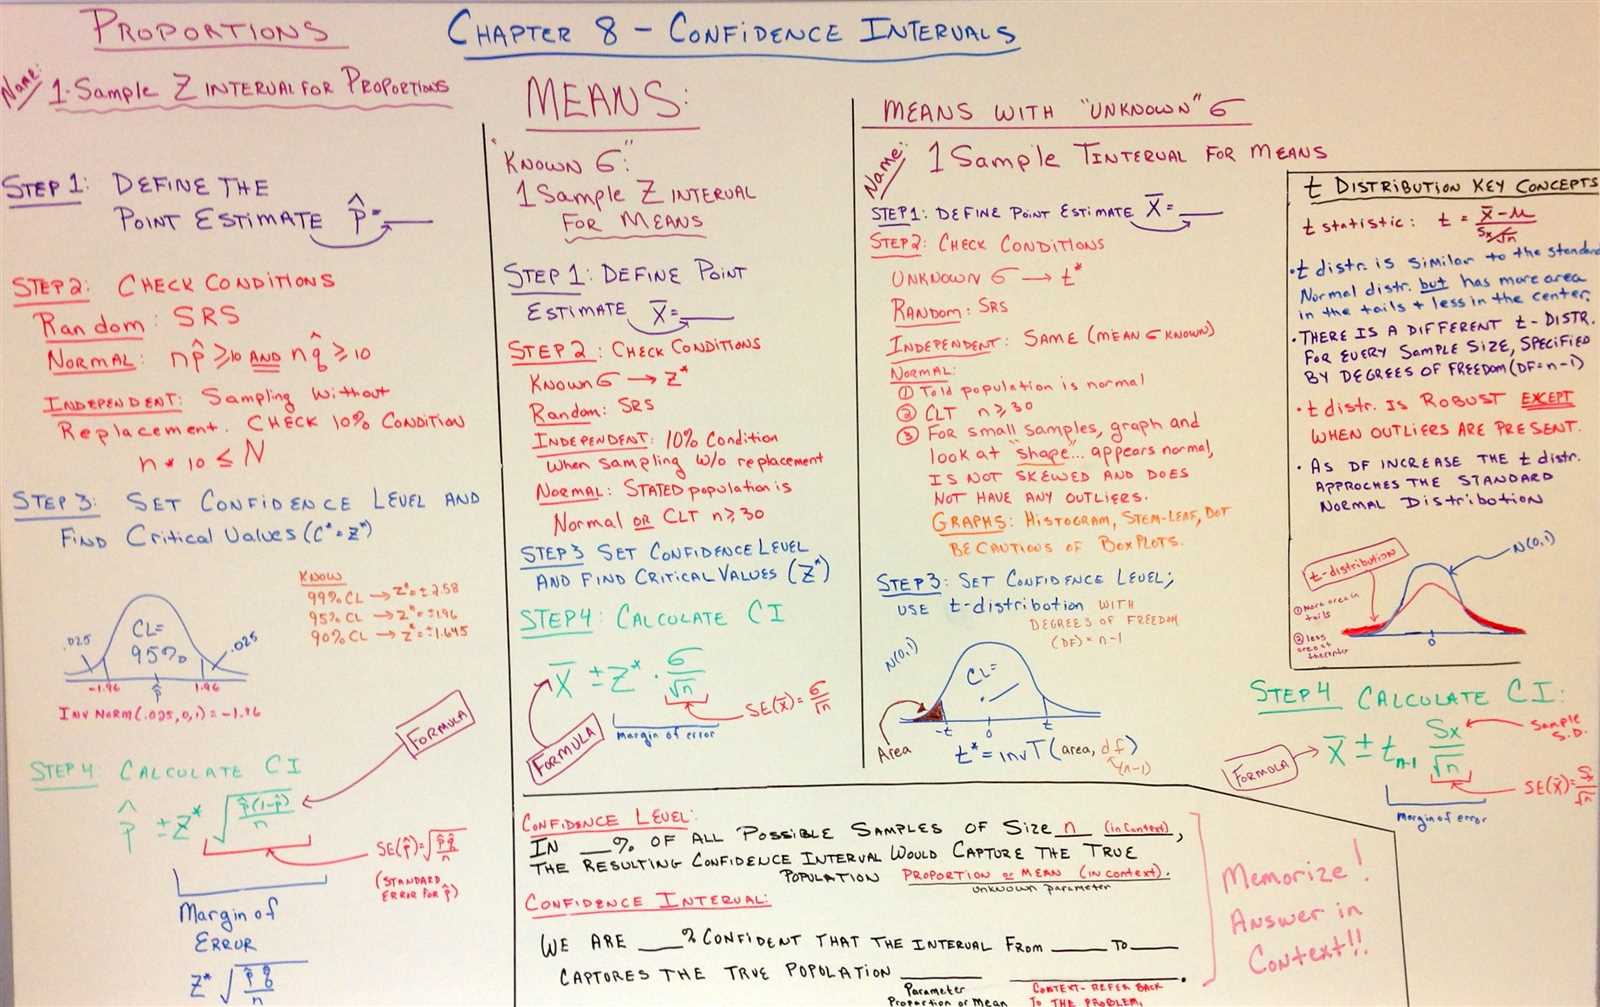 PROPORTIONS
CHAPTER 8 - CONFIDENCE INTERVALS
Name:
1-Sample Z INTERVAL FOR PROPORTIONS
STEP 1: DEFINE THE
POINT ESTIMATE p̂ = ___
STEP 2: CHECK CONDITIONS
Random: SRS
NORMAL: np̂ ≥ 10 AND nq̂ ≥ 10
INDEPENDENT: Sampling Without
Replacement. CHECK 10% CONDITION
n * 10 ≤ N
STEP 3: SET CONFIDENCE LEVEL AND
FIND Critical Values (C* = Z*)
KNOW
99% CL → Z* = ± 2.58
95% CL → Z* = ± 1.96
90% CL → Z* = ± 1.645
.025
CL =
95%
.025
-1.96
p̂
1.96
INV NORM (.025, 0, 1) = -1.96
FORMULA
STEP 4: CALCULATE CI
p̂ ± Z* √(p̂(1-p̂)/n)
SE(p̂) = √(p̂q̂/n)
(STANDARD
ERROR FOR p̂)
Margin of
ERROR
Z* √(p̂q̂/n)
MEANS:
"KNOWN σ":
1 Sample Z INTERVAL
FOR MEANS
STEP 1: DEFINE POINT
ESTIMATE x̄ = ___
STEP 2: CHECK CONDITIONS
KNOWN σ → Z*
Random: SRS
INDEPENDENT: 10% Condition
When sampling w/o replacement
NORMAL: STATED population is
Normal OR CLT n ≥ 30
STEP 3 SET CONFIDENCE LEVEL
AND FIND CRITICAL VALUES (Z*)
STEP 4: CALCULATE CI
x̄ ± Z* · σ/√n
SE(x̄) = σ/√n
margin of error
FORMULA
MEANS WITH "UNKNOWN" σ
Name:
1 Sample T INTERVAL FOR MEANS
STEP 1: DEFINE POINT ESTIMATE x̄ = ___
STEP 2: CHECK CONDITIONS
UNKNOWN σ → t*
RANDOM: SRS
INDEPENDENT: SAME (MEAN σ KNOWN)
NORMAL:
① Told population is normal
② CLT n ≥ 30
③ For small samples, graph and
look at "shape"... appears normal,
IS NOT SKEWED AND DOES
NOT HAVE ANY OUTLIERS.
GRAPHS: HISTOGRAM, STEM-LEAF, DOT
BE CAUTIONS OF BOXPLOTS.
STEP 3: SET CONFIDENCE LEVEL;
USE t-distribution WITH
DEGREES OF FREEDOM
(DF) = n-1
N(0,1)
CL =
Area
-t
0
t
t* = invT (area, df)
(n-1)
t DISTRIBUTION KEY CONCEPTS
t statistic: t = x̄ - μ / Sx/√n
• t distr. is similar to the standard
Normal distr. but has more area
in the tails + less in the center.
• THERE IS A DIFFERENT t-DISTR.
FOR EVERY SAMPLE SIZE, SPECIFIED
BY DEGREES OF FREEDOM (DF = n-1)
• t distr. IS ROBUST EXCEPT
WHEN OUTLIERS ARE PRESENT.
• AS DF INCREASE THE t distr.
APPROCHES THE STANDARD
NORMAL DISTRIBUTION
t-distribution
N(0,1)
① More area in
tails
② less
area at
the center
0
STEP 4 CALCULATE CI:
FORMULA
x̄ ± t n-1 Sx/√n
Sample
S.D.
SE(x̄) = Sx/√n
Margin of error
CONFIDENCE LEVEL:
IN __% OF ALL POSSIBLE SAMPLES OF SIZE n (in context),
THE RESULTING CONFIDENCE INTERVAL WOULD CAPTURE THE TRUE
POPULATION PROPORTION or MEAN (IN CONTEXT).
unknown parameter
CONFIDENCE INTERVAL:
WE ARE ___% CONFIDENT THAT THE INTERVAL FROM ___ TO ___
CAPTURES THE TRUE POPULATION ___ ___.
Parameter
Proportion or Mean
CONTEXT- REFER BACK
TO THE PROBLEM.
Memorize!
Answer in
Context!!